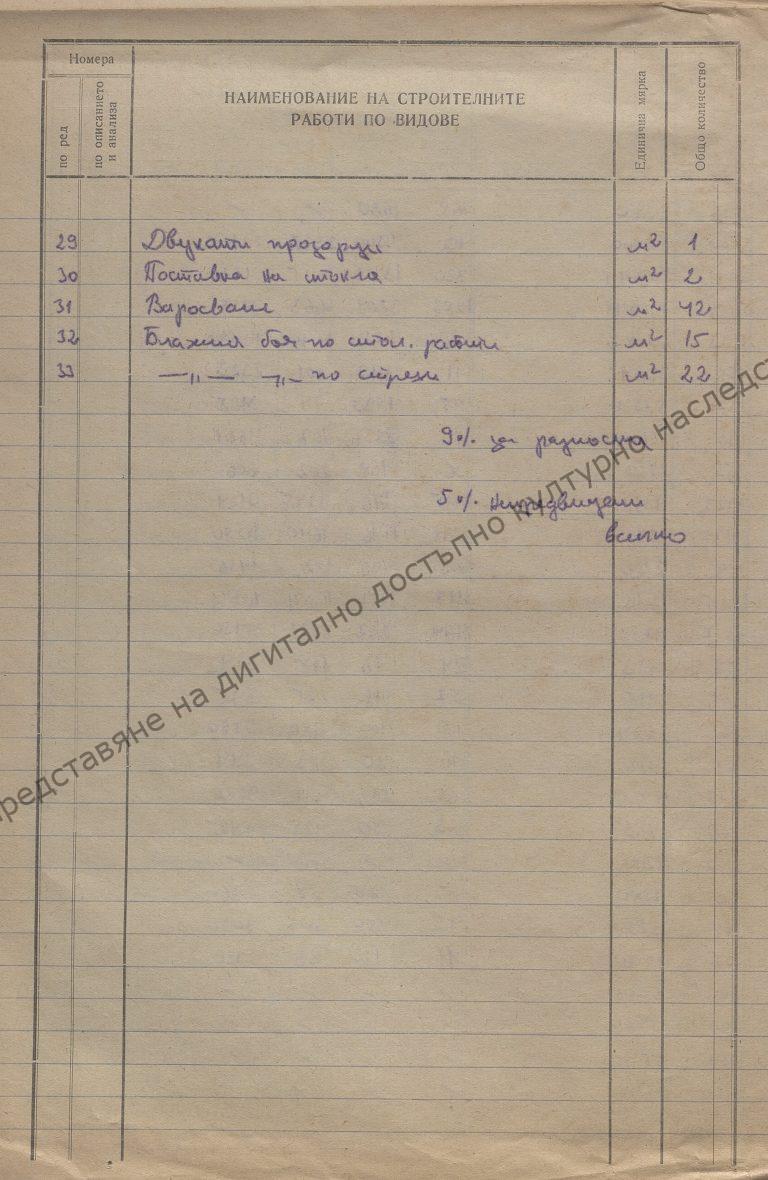 Номера
по ред
по описанието и анализа
НАИМЕНОВАНИЕ НА СТРОИТЕЛНИТЕ
РАБОТИ ПО ВИДОВЕ
Единична мярка
Общо количество
29 Двукатни прозорци м² 1
30 Поставка на стъкла м² 2
31 Варосване м² 42
32 Блажна боя по стол. работи м² 15
33 —„— —„— по стрехи м² 22
9% за разноски
5% непредвидени
всичко
редставяне на дигитално достъпно културно наследст